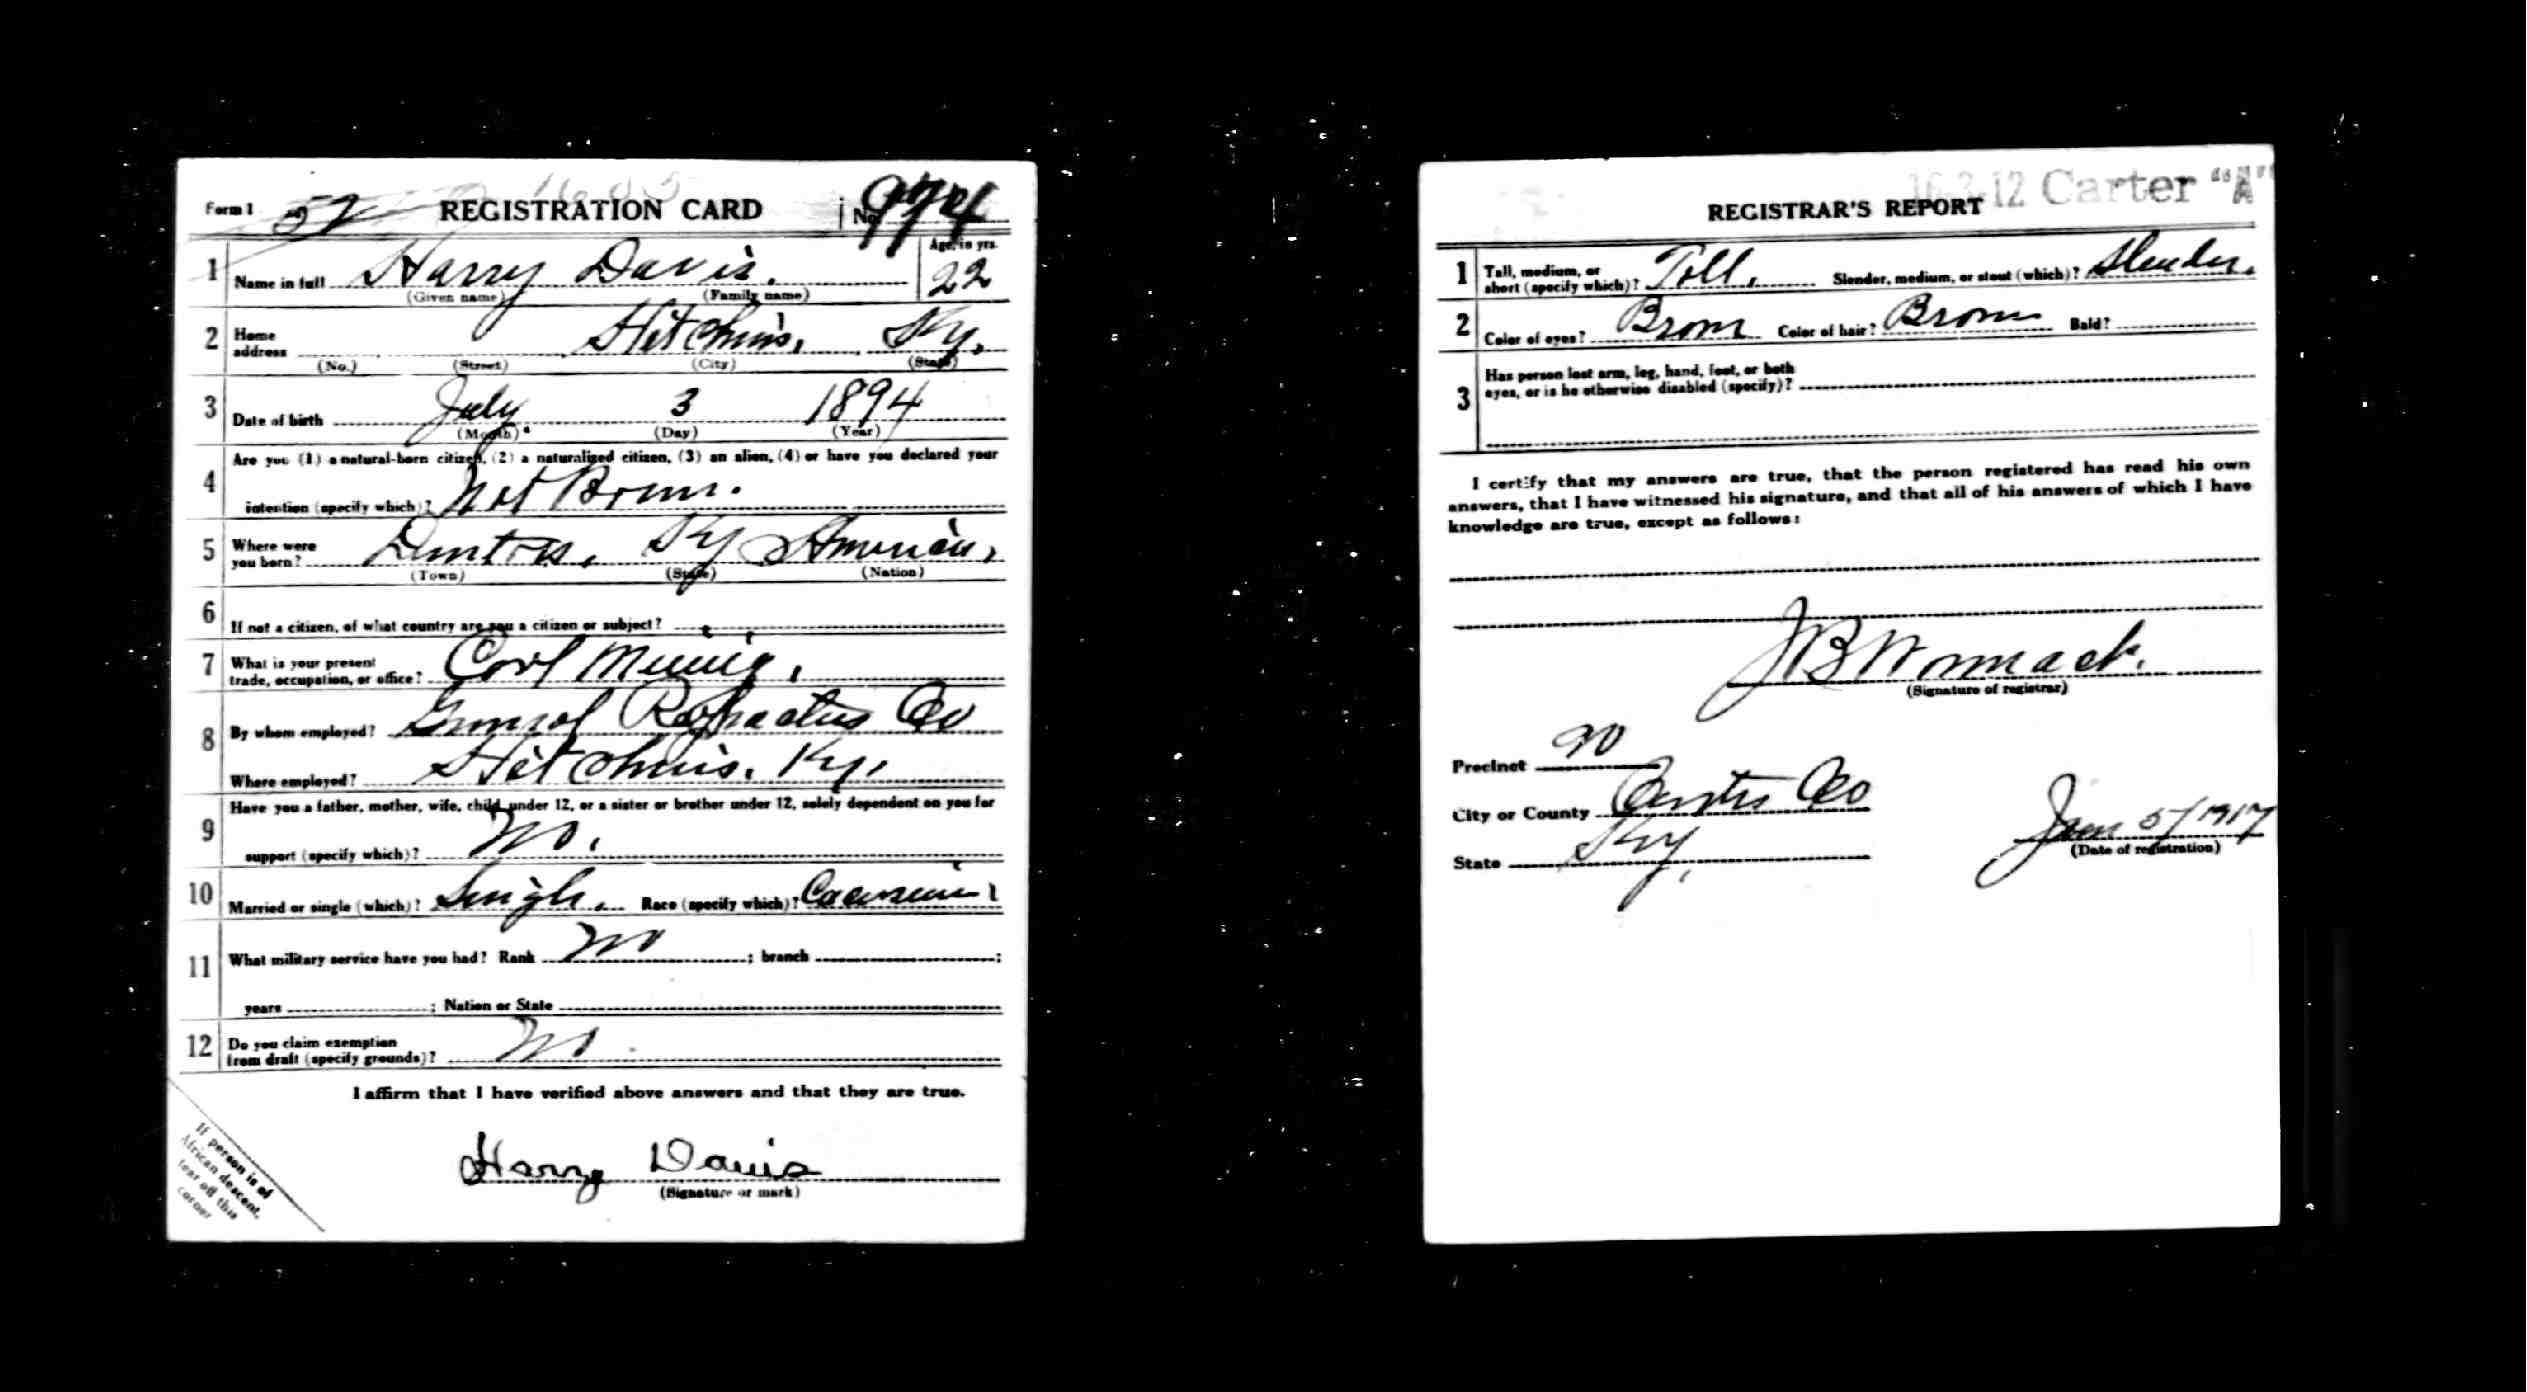 Form 1 52 REGISTRATION CARD No. 974
1 Name in full Harry Davis. Age, in yrs. 22
(Given name) (Family name)
2 Home address Hitchins, Ky.
(No.) (Street) (City) (State)
3 Date of birth July 3 1894
(Month) (Day) (Year)
4 Are you (1) a natural-born citizen, (2) a naturalized citizen, (3) an alien, (4) or have you declared your
intention (specify which)? Nat Born.
5 Where were you born? Denton, Ky America,
(Town) (State) (Nation)
6 If not a citizen, of what country are you a citizen or subject?
7 What is your present trade, occupation, or office? Coal Mining,
8 By whom employed? General Refractories Co
Where employed? Hitchins, Ky,
9 Have you a father, mother, wife, child under 12, or a sister or brother under 12, solely dependent on you for
support (specify which)? No.
10 Married or single (which)? Single. Race (specify which)? Caucasian
11 What military service have you had? Rank No ; branch ;
years ; Nation or State
12 Do you claim exemption from draft (specify grounds)? No
I affirm that I have verified above answers and that they are true.
Harry Davis
(Signature or mark)
If person is of
African descent,
tear off this
corner
16-3-12 Carter "A"
REGISTRAR'S REPORT
1 Tall, medium, or short (specify which)? Tall, Slender, medium, or stout (which)? Slender.
2 Color of eyes? Brown Color of hair? Brown Bald?
3 Has person lost arm, leg, hand, foot, or both
eyes, or is he otherwise disabled (specify)?
I certify that my answers are true, that the person registered has read his own
answers, that I have witnessed his signature, and that all of his answers of which I have
knowledge are true, except as follows:
J B Womack.
(Signature of registrar)
Precinct
City or County Carter Co
State Ky,
Jun 5/1917
(Date of registration)